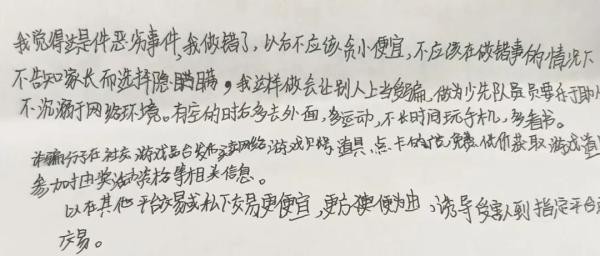 我觉得这是件恶劣事件,我做错了,以后不应该贪小便宜,不应该在做错事的情况下
不告知家长而选择隐瞒,我这样做会让别人上当受骗,做为少先队员要乐于助
不沉溺于网络环境。有空的时后多去外面,多运动,不长时间玩手机,多看书。
诈骗分子在社交、游戏平台发布买卖网络游戏账号、道具、点卡的 免费 低价获取游戏道
参加抽奖活动 等相关信息。
以在其他平台交易或私下交易更便宜,更方便为由,诱导受害人到指定平台
交易。